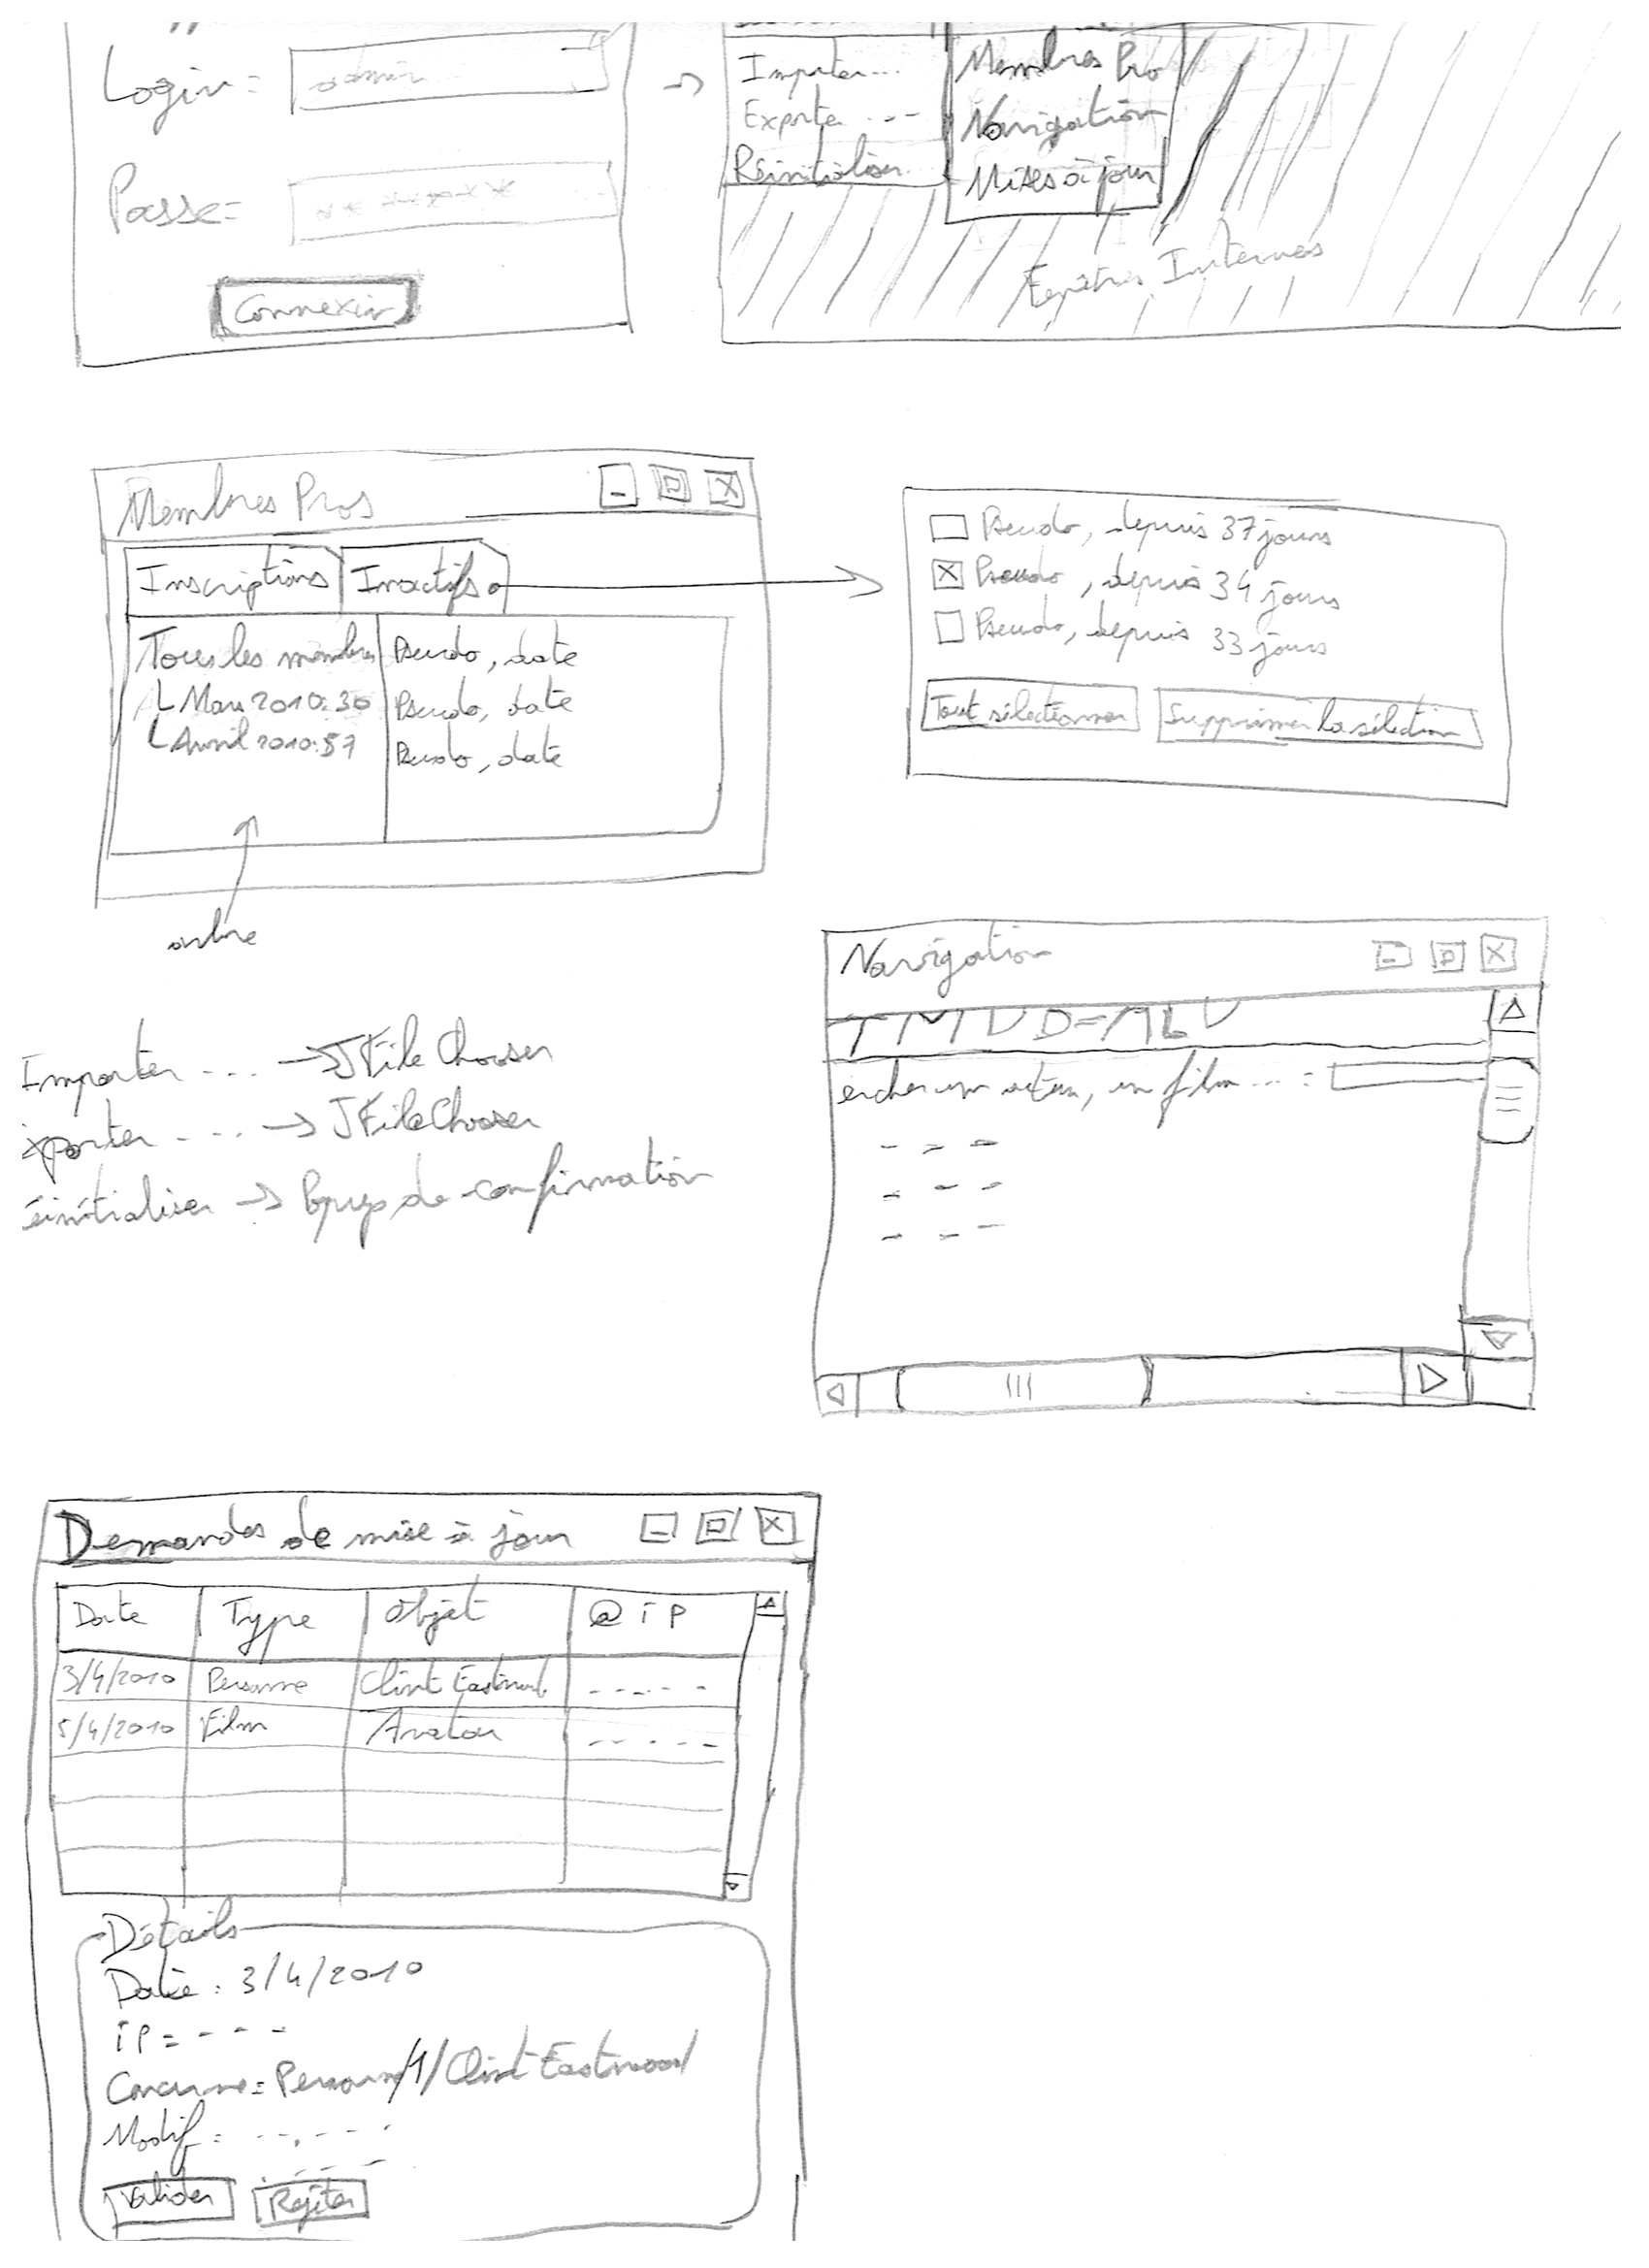 Login = admin
Passe = ******
Connexion
Importer...
Exporter ...
Réinitialiser
Membres Pro
Navigation
Mises à jour
Fenêtres Internes
Membres Pros
Inscriptions
Inactifs
Tous les membres
Mars 2010: 30
Avril 2010: 57
Pseudo, date
Pseudo, date
Pseudo, date
arbre
Pseudo, depuis 37 jours
Pseudo, depuis 34 jours
Pseudo, depuis 33 jours
Tout sélectionner
Supprimer la sélection
Importer ... → JFileChooser
xporter .... → JFileChooser
éinitialiser → Popup de confirmation
Navigation
ercher un acteur, un film ... :
Demandes de mise à jour
Date Type Objet @ip
3/4/2010 Personne Clint Eastwood
5/4/2010 Film Avatar
Détails
Date : 3/4/2010
ip = - - -
Concerne = Personne/1/Clint Eastwood
Modif =
Valider Rejeter